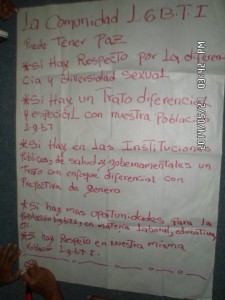 La Comunidad LGBTI
Puede Tener Paz
*Si Hay Respeto Por La diferen
cia y diversidad sexual
*Si Hay un Trato diferencial
y especial con nuestra Población
L·g·b·T
*Si Hay en Las Instituciones
Publicas, de salud, gobernamentales un
Trato con enfoque diferencial con
Perspectiva de genero
*Si hay mas oportunidades para la
Población Lgbti, en materia Laboral, educativa,
*Si hay Respeto en nuestra misma
Población L·g·b·T·I.